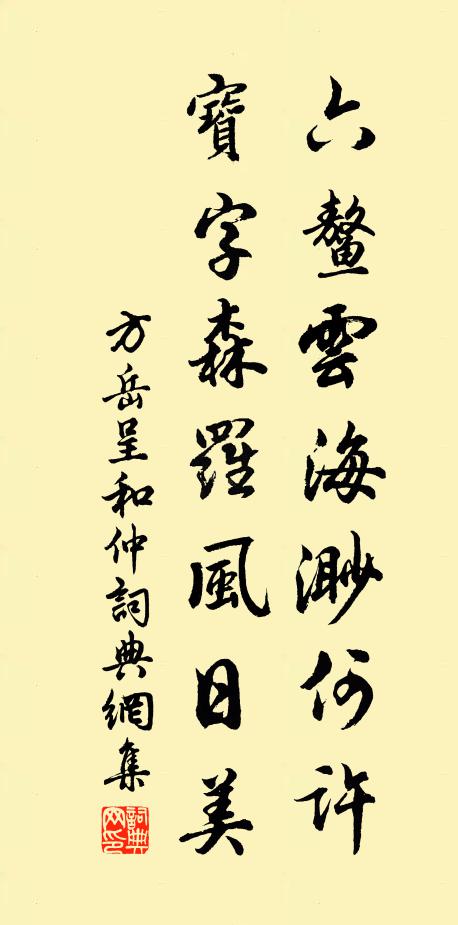 六鰲雲海渺何許
寶字森羅風日美
方岳呈和仲詞典網集
詞典網印